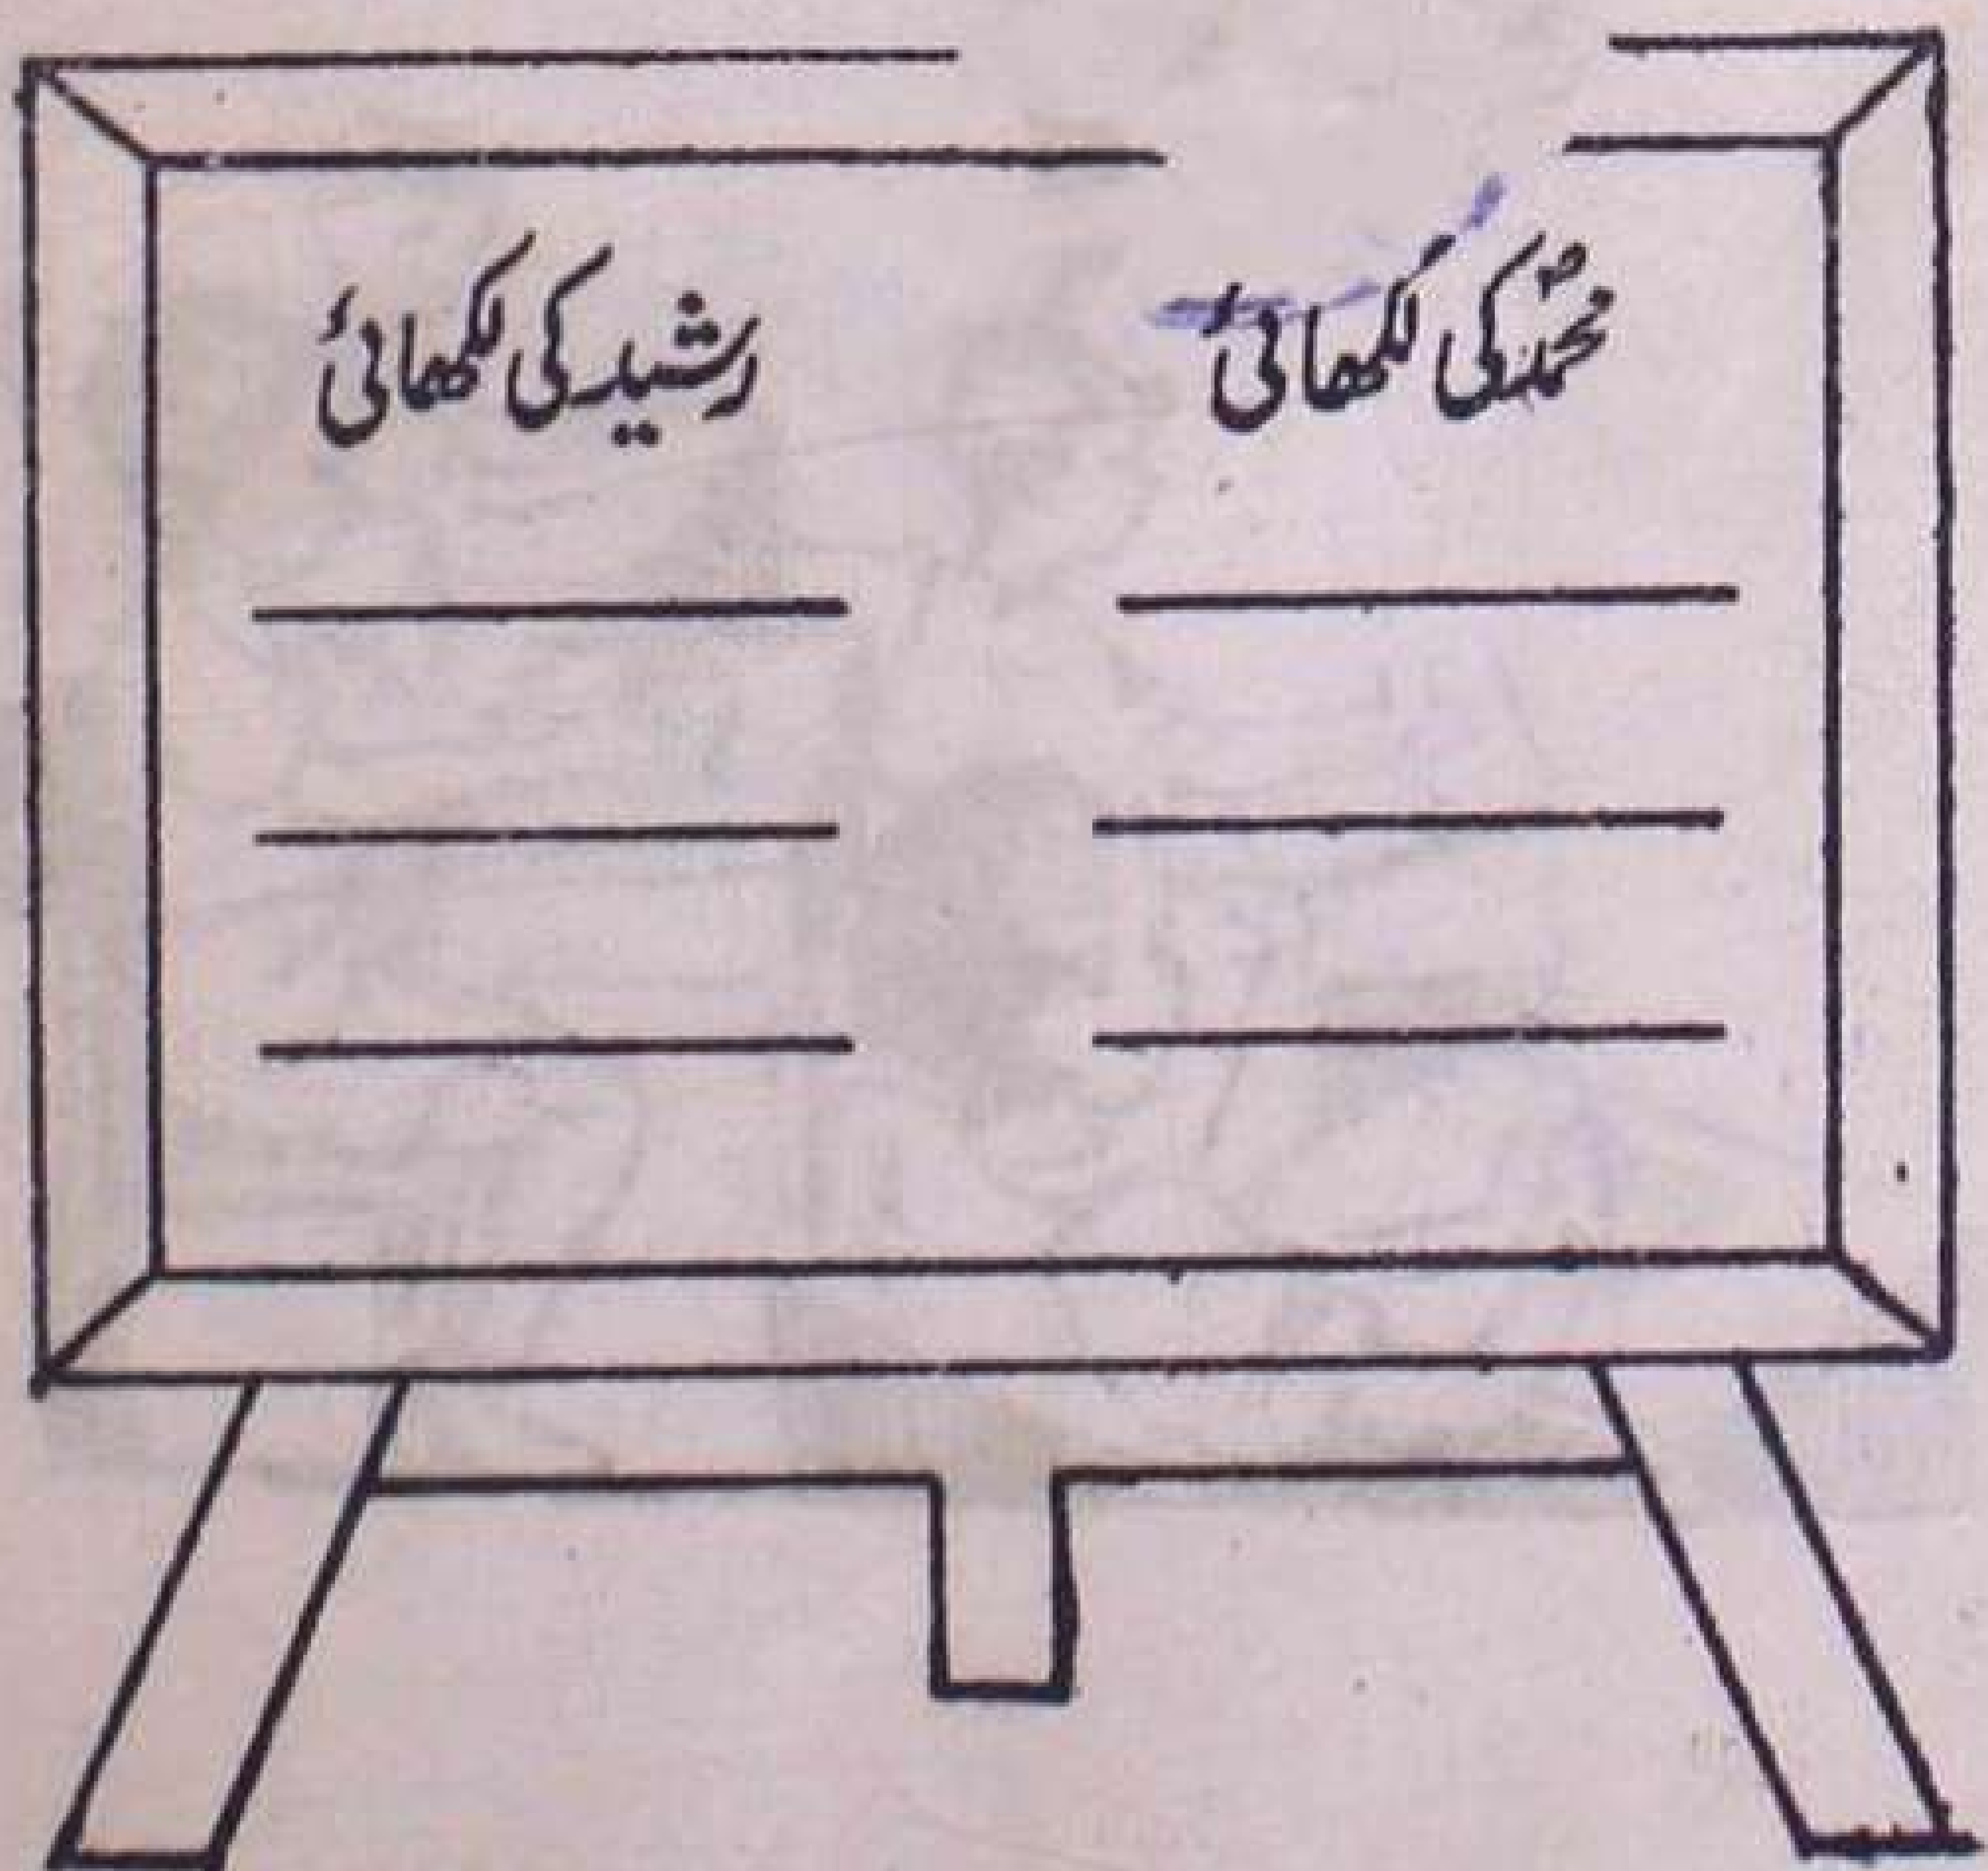 محمد کی لکھائی
رشید کی لکھائی